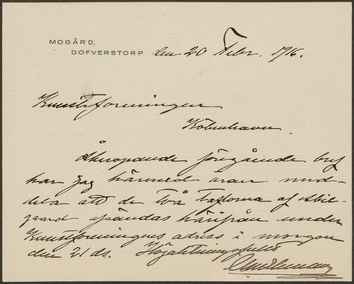 MOGÅRD,
DOFVERSTORP den 20 Febr. 1916.
Kunstforeningen
Köbenhavn.
Åberopande föregående bref
har jag härmed äran med-
dela att de två taflorna af Abil-
gaard afsändas härifrån under
Kunstforeningens adress i morgon
den 21 ds. Högaktningsfullt